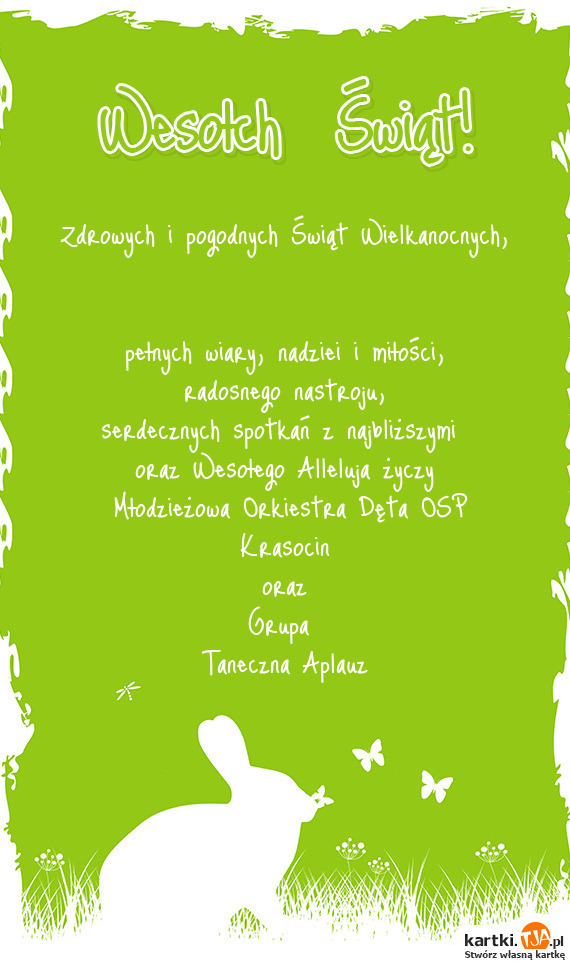 Wesołch Świąt!
Zdrowych i pogodnych Świąt Wielkanocnych,
pełnych wiary, nadziei i miłości,
radosnego nastroju,
serdecznych spotkań z najbliższymi
oraz Wesołego Alleluja życzy
Młodzieżowa Orkiestra Dęta OSP
Krasocin
oraz
Grupa
Taneczna Aplauz
kartki.TJA.pl
Stwórz własną kartkę